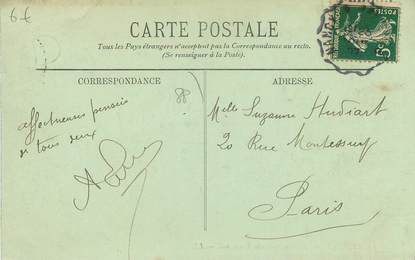 6€
CARTE POSTALE
Tous les Pays étrangers n'acceptent pas la Correspondance au recto.
(Se renseigner à la Poste).
POSTES
5c
CORRESPONDANCE
ADRESSE
88
affectueuses pensées
de tous deux
Melle Suzanne
20 Rue Montessuy
Paris